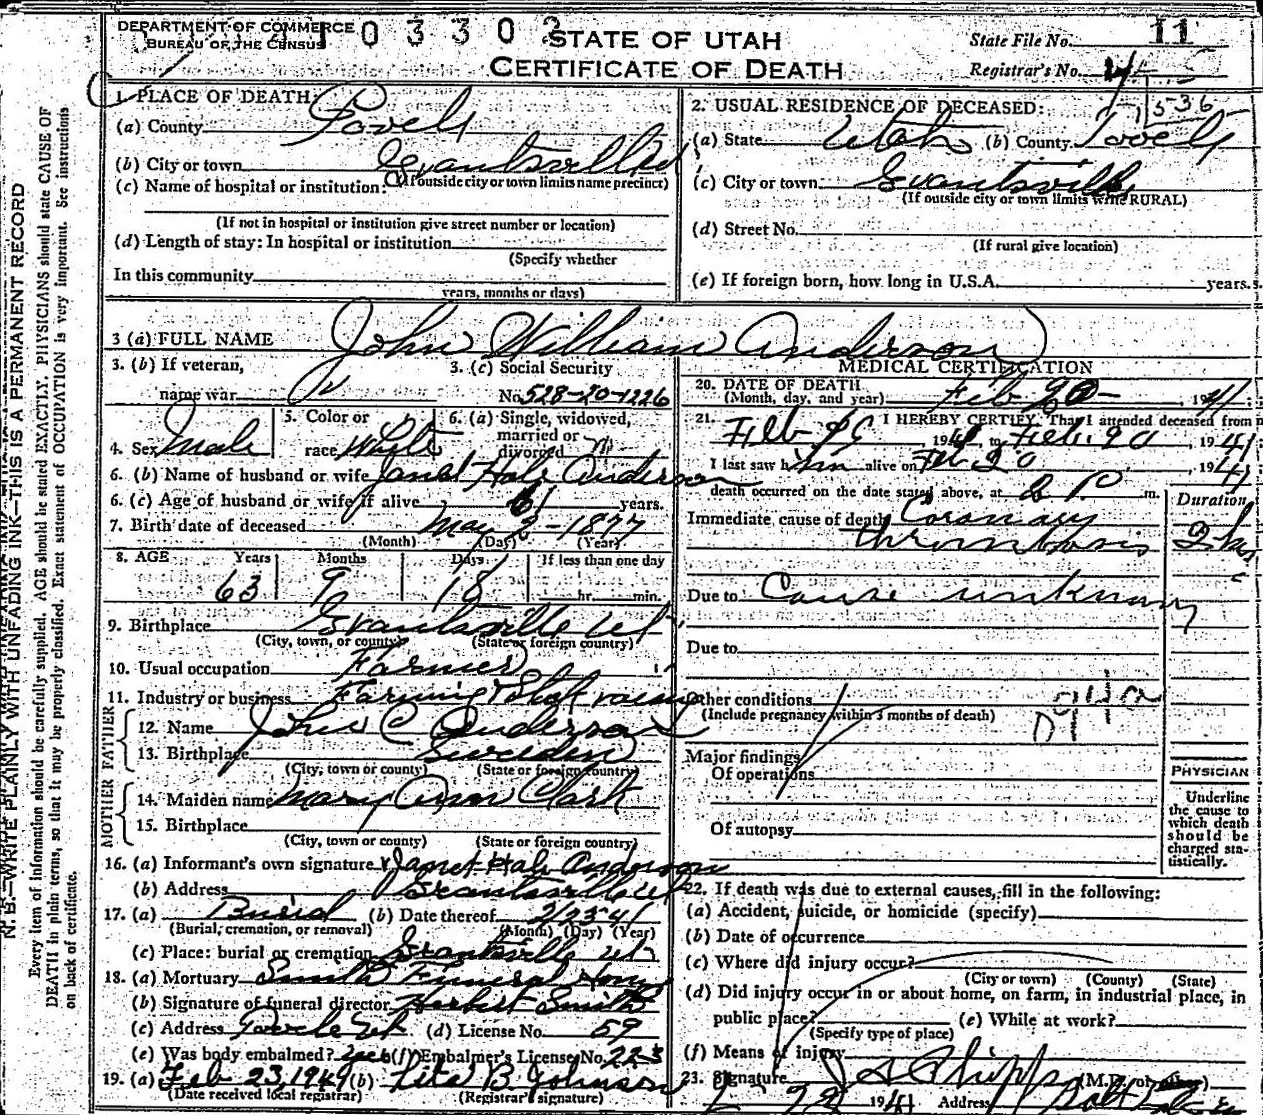 DEPARTMENT OF COMMERCE
BUREAU OF THE CENSUS
0 3 3 0 3
STATE OF UTAH
CERTIFICATE OF DEATH
State File No. 11
Registrar's No.
1. PLACE OF DEATH:
(a) County Tooele
(b) City or town Grantsville Ut
(If outside city or town limits name precinct)
(c) Name of hospital or institution:
(If not in hospital or institution give street number or location)
(d) Length of stay: In hospital or institution
(Specify whether
In this community
years, months or days)
2. USUAL RESIDENCE OF DECEASED:
(a) State Utah (b) County Tooele
(c) City or town Grantsville
(If outside city or town limits write RURAL)
(d) Street No.
(If rural give location)
(e) If foreign born, how long in U.S.A. years.
3 (a) FULL NAME John William Anderson
3. (b) If veteran,
name war
3. (c) Social Security
No. 528-20-1226
4. Sex Male
5. Color or
race White
6. (a) Single, widowed,
married or
divorced M
6. (b) Name of husband or wife Janet Hale Anderson
6. (c) Age of husband or wife if alive 61 years.
7. Birth date of deceased May 2 - 1877
(Month) (Day) (Year)
8. AGE Years Months Days If less than one day
63 9 18 hr. min.
9. Birthplace Grantsville Ut.
(City, town, or county) (State or foreign country)
10. Usual occupation Farmer
11. Industry or business Farming
FATHER
12. Name John C Anderson
13. Birthplace Sweden
(City, town or county) (State or foreign country)
MOTHER
14. Maiden name Mary Ann Clark
15. Birthplace
(City, town or county) (State or foreign country)
16. (a) Informant's own signature Janet Hale Anderson
(b) Address Grantsville Ut
17. (a) Burial (b) Date thereof 2/23-41
(Burial, cremation, or removal) (Month) (Day) (Year)
(c) Place: burial or cremation Grantsville Ut
18. (a) Mortuary Smith Funeral Home
(b) Signature of funeral director Herbert Smith
(c) Address Tooele Ut (d) License No. 59
(e) Was body embalmed? yes (f) Embalmer's License No. 223
19. (a) Feb 23, 1941 (b) B. Johnson
(Date received local registrar) (Registrar's signature)
MEDICAL CERTIFICATION
20. DATE OF DEATH
(Month, day, and year) Feb 20 - , 1941
21. I HEREBY CERTIFY, That I attended deceased from
Feb 20 1941, to Feb. 20, 1941
I last saw him alive on Feb 20, 1941
death occurred on the date stated above, at 2 P. m.
Duration
Immediate cause of death Coronary
thrombosis 2 hrs
Due to Cause unknown
Due to
Other conditions
(Include pregnancy within 3 months of death)
94a
Major findings
Of operations
Of autopsy
PHYSICIAN
Underline
the cause to
which death
should be
charged sta-
tistically.
22. If death was due to external causes, fill in the following:
(a) Accident, suicide, or homicide (specify)
(b) Date of occurrence
(c) Where did injury occur?
(City or town) (County) (State)
(d) Did injury occur in or about home, on farm, in industrial place, in
public place? (e) While at work?
(Specify type of place)
(f) Means of injury
23. Signature Phipps (M.D. or
1941 Address Salt
N. B.—WRITE PLAINLY WITH UNFADING INK—THIS IS A PERMANENT RECORD
Every item of information should be carefully supplied. AGE should be stated EXACTLY. PHYSICIANS should state CAUSE OF
DEATH in plain terms, so that it may be properly classified. Exact statement of OCCUPATION is very important. See instructions
on back of certificate.